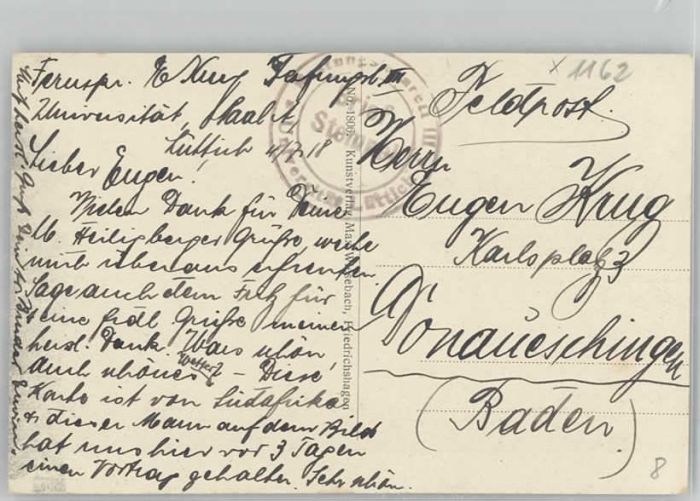 Fernspr. E Krug Festungslaz. III
Universität, Staatl.
Lüttich 4/7.18
Lieber Eugen!
Vielen Dank für Deine
lb. Heiligberger Grüße, welche
mich überaus erfreuten
Sage auch dem Fritz für
seine frdl Grüße meinen
herzl. Dank. Was schön
auch schönes Wetter? – Diese
Karte ist von Südafrika
& dieser Mann auf dem Bild
hat uns hier vor 3 Tagen
einen Vortrag gehalten. Sehr schön.
Gruß Bruder Erwin.
Brief
Stempel
III
No. 1809. Kunstverlag Max Friedrichshagen
1162
Feldpost.
Herrn
Eugen Krug
Karlsplatz 3
Donaueschingen
(Baden)
8